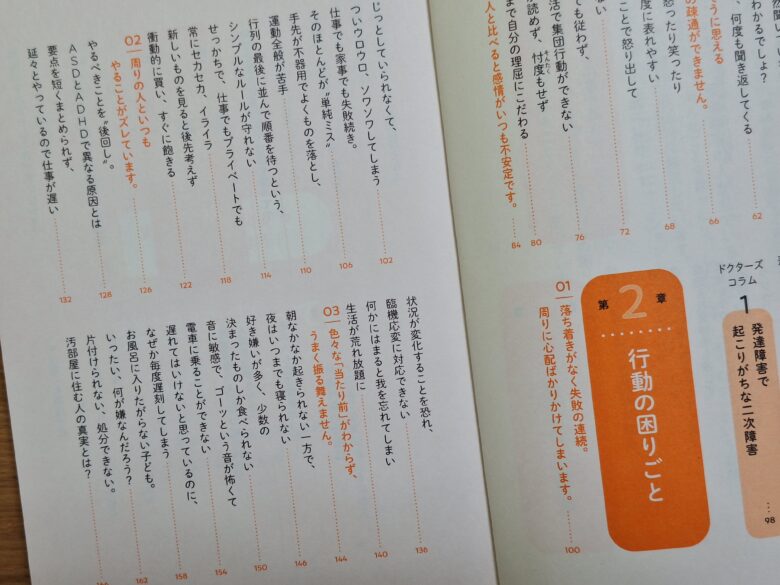 然関して
、何度も聞き返してくる
わかるでしょ?
62
の疎通ができません。
66
ように思える
怒ったり笑ったり
度に表れやすい
68
ことで怒り出して
ない
72
でも従わず、
活で集団行動ができない
76
読めず、忖度もせず
まで自分の理屈にこだわる
80
人と比べると感情がいつも不安定です。
84
ドクターズ
コラム
1
発達障害で
起こりがちな二次障害
98
第2章
行動の困りごと
01 落ち着きがなく失敗の連続。
周りに心配ばかりかけてしまいます。
100
じっとしていられなくて、
ついウロウロ、ソワソワしてしまう
102
仕事でも家事でも失敗続き。
そのほとんどが“単純ミス”
106
手先が不器用でよくものを落とし、
運動全般が苦手
110
行列の最後に並んで順番を待つという、
シンプルなルールが守れない
114
せっかちで、仕事でもプライベートでも
常にセカセカ、イライラ
118
新しいものを見ると後先考えず
衝動的に買い、すぐに飽きる
122
02 周りの人といつも
やることがズレています。
126
やるべきことを“後回し”。
ASDとADHDで異なる原因とは
128
要点を短くまとめられず、
延々とやっているので仕事が遅い
132
状況が変化することを恐れ、
臨機応変に対応できない
136
何かにはまると我を忘れてしまい
生活が荒れ放題に
140
03 色々な“当たり前”がわからず、
うまく振る舞えません。
144
朝なかなか起きられない一方で、
夜はいつまでも寝られない
146
好き嫌いが多く、少数の
決まったものしか食べられない
150
音に敏感で、ゴーッという音が怖くて
電車に乗ることができない
154
遅れてはいけないと思っているのに、
なぜか毎度遅刻してしまう
158
お風呂に入りたがらない子ども。
いったい、何が嫌なんだろう?
162
片付けられない、処分できない。
汚部屋に住む人の真実とは?